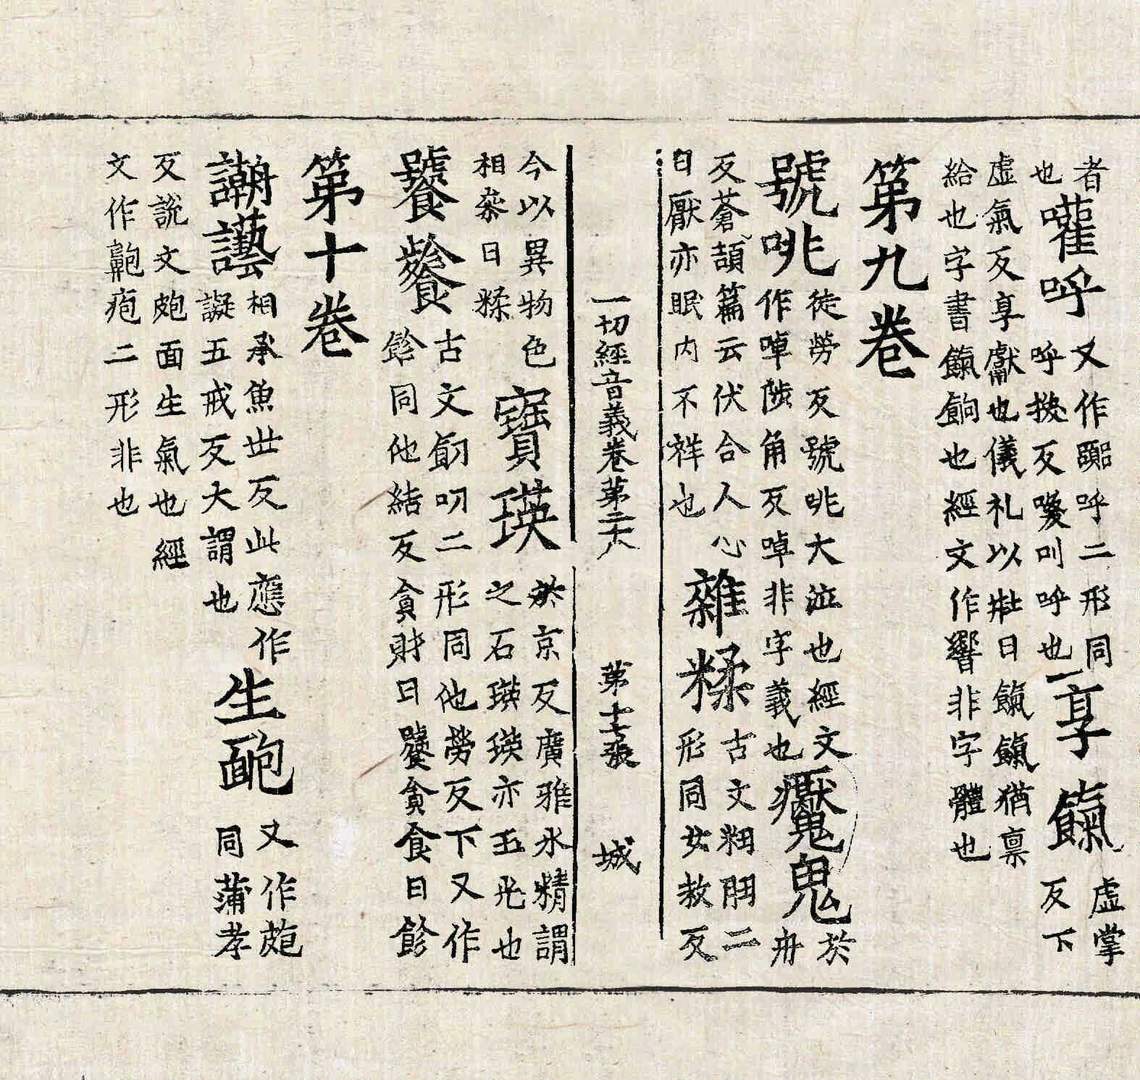 者
也
嚾呼
又作䛐呼二形同
呼換反嚾叫呼也
享餼
虛掌
反下
虛氣反享獻也儀礼以牲曰餼餼猶禀
給也字書餼餉也經文作響非字體也
第九卷
號咷
徒勞反號咷大泣也經文
作啅陟角反啅非字義也
魘鬼
於
冉
反蒼頡篇云伏合人心
曰厭亦眠内不祥也
雜糅
古文粈䏔二
形同女救反
一切經音義卷第二十八 第十七張 城
今以異物色
相桒曰糅
寶瑛
於京反廣雅水精謂
之石瑛瑛亦玉光也
饕餮
古文叨二形同他勞反下又作
飻同他結反貪財曰饕貪食曰飻
第十卷
謿譺
相承魚世反此應作
譺五戒反大謂也
生皰
又作皰
同蒲孝
反說文皰面生氣也經
文作疱二形非也